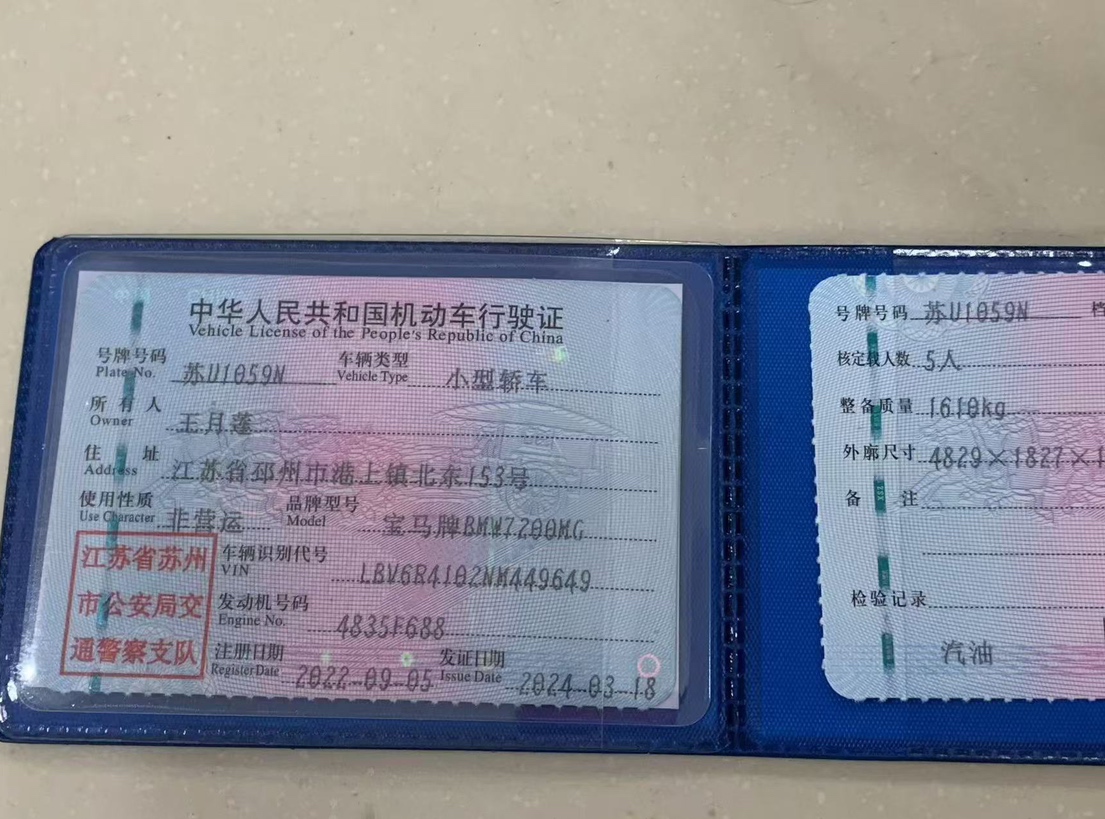 中华人民共和国机动车行驶证
Vehicle License of the People's Republic of China
号牌号码 苏U1059N 车辆类型 小型轿车
Plate No. Vehicle Type
所有人 王月蓬
Owner
住址 江苏省邳州市港上镇北东153号
Address
使用性质 非营运 品牌型号 宝马牌BMW7200MG
Use Character Model
江苏省苏州
市公安局交
通警察支队
车辆识别代号 LBV6R4102NM449649
VIN
发动机号码 4835F688
Engine No.
注册日期 2022-09-05 发证日期 2024-03-18
Register Date Issue Date
号牌号码 苏U1059N 档
核定载人数 5人
整备质量 1610kg
外廓尺寸 4829×1827×1
备注
检验记录
汽油